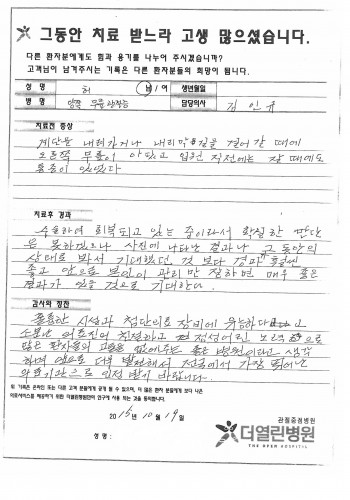 그동안 치료 받느라 고생 많으셨습니다.
다른 환자분에게도 힘과 용기를 나누어 주시겠습니까?
고객님이 남겨주시는 기록은 다른 환자분들의 희망이 됩니다.
성 명 허 남/여 생년월일
병 명 양쪽 무릎 담당의사 김인규
치료전 증상
계단을 내려가거나 내리막길을 걸어갈 때에
오른쪽 무릎이 아팠고 입원 직전에는 잘 때에도
통증이 있었다
치료후 경과
수술하여 회복되고 있는 중이라서 확실한 판단
은 못하겠으나 사진에 나타난 결과나 그동안의
상태로 봐서 기대했던 것 보다 경과가
좋고 앞으로 본인이 관리만 잘하면 매우 좋은
결과가 있을 것으로 기대한다.
감사와 칭찬
훌륭한 시설과 첨단의료 장비에 유능하다고
소문난 의료진의 친절하고 정성어린 노력으로
많은 환자들의 고통을 없애주는 좋은 병원이라고 생각
하며 앞으로 더욱 발전해서 전국에서 가장 뛰어난
의료기관으로 인정 받기 바랍니다.
위 기록은 온라인 또는 다른 고객분들에게 공개 될 수 있으며, 더 많은 환자 분들에게 보다 나은
의료서비스를 제공하기 위한 더열린병원만의 연구에 사용 하는 것을 동의합니다.
2015년 10월 19일
성명 :
관절중점병원
더열린병원
THE OPEN HOSPITAL